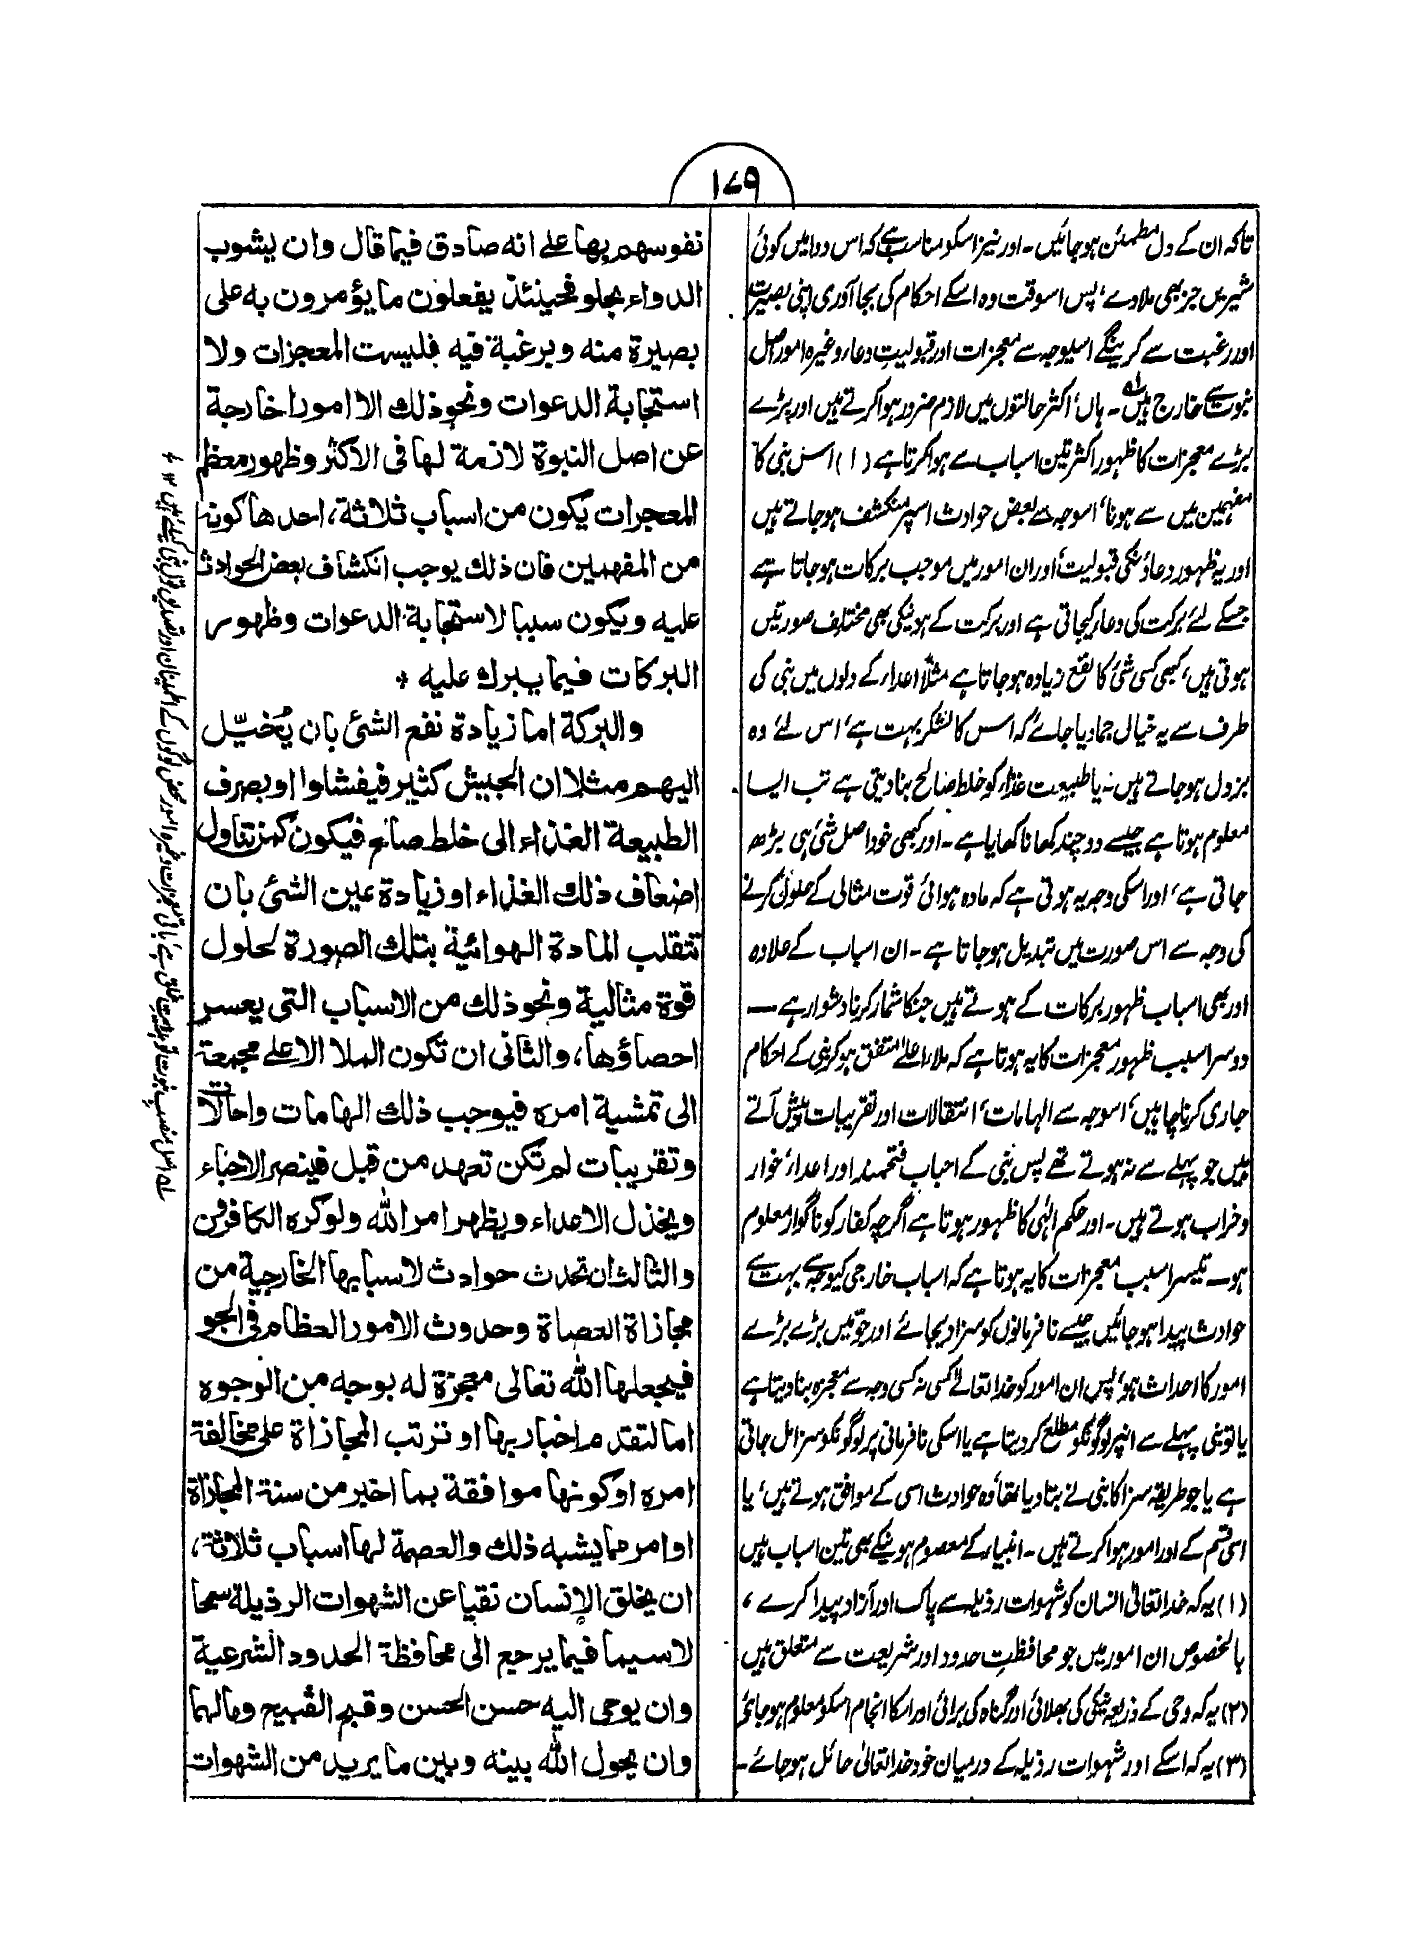 ۱۷۹
تاکہ ان کے دل مطمئن ہوجائیں۔ اور نیز اسکو مناسب ہے کہ اس دوا میں کوئی
شیریں چیز بھی ملادے، پس اسوقت وہ اسکے احکام کی بجا آوری اپنی بصیرت
اور رغبت سے کرینگے اسیوجہ سے معجزات اور قبولیت دعاء وغیرہ امور اصل
نبوت سے خارج ہیں لہ۔ ہاں، اکثر حالتوں میں لازم ضرور ہوا کرتے ہیں اور بڑے
بڑے معجزات کا ظہور اکثر تین اسباب سے ہوا کرتا ہے (۱) اس نبی کا
مفہمین میں سے ہونا، اسوجہ سے بعض حوادث اسپر منکشف ہوجاتے ہیں
اور یہ ظہور دعاؤنکی قبولیت اور ان امور میں موجب برکات ہوجاتا ہے
جسکے لئے برکت کی دعا کیجاتی ہے اور برکت کے ہونیکی بھی مختلف صورتیں
ہوتی ہیں، کبھی کسی شئ کا نفع زیادہ ہوجاتا ہے مثلاً اعداء کے دلوں میں نبی کی
طرف سے یہ خیال جمادیا جائے کہ اس کا لشکر بہت ہے، اس لئے وہ
بزدل ہوجاتے ہیں۔ یا طبیعت غذاء کو خلط صالح بنادیتی ہے تب ایسا
معلوم ہوتا ہے جیسے دوچند کھانا کھایا ہے۔ اور کبھی خود اصل شئ ہی بڑھ
جاتی ہے، اور اسکی وجہ یہ ہوتی ہے کہ مادہ ہوائی قوت مثالی کے حلول کرنے
کی وجہ سے اس صورت میں تبدیل ہوجاتا ہے۔ ان اسباب کے علاوہ
اور بھی اسباب ظہور برکات کے ہوتے ہیں جنکا شمار کرنا دشوار ہے —
دوسرا سبب ظہور معجزات کا یہ ہوتا ہے کہ ملاء اعلیٰ متفق ہوکر نبی کے احکام
جاری کرنا چاہیں، اسوجہ سے الہامات، انتقالات اور تقریبات پیش آتے
ہیں جو پہلے سے نہ ہوتے تھے پس نبی کے احباب فتحمند اور اعداء خوار
و خراب ہوتے ہیں۔ اور حکم الٰہی کا ظہور ہوتا ہے اگرچہ کفار کو ناگوار معلوم
ہو۔ تیسرا سبب معجزات کا یہ ہوتا ہے کہ اسباب خارجی کیوجہ سے بہت سے
حوادث پیدا ہوجائیں جیسے نافرمانوں کو سزا دیجائے اور جوّ میں بڑے بڑے
امور کا احداث ہو، پس ان امور کو خدا تعالیٰ کسی نہ کسی وجہ سے معجزہ بنادیتا ہے
یا تو نبی پہلے سے انپر لوگونکو مطلع کردیتا ہے یا اسکی نافرمانی پر لوگونکو سزا مل جاتی
ہے یا جو طریقہ سزا کا نبی نے بتا دیا تھا وہ حوادث اسی کے موافق ہوتے ہیں، یا
اسی قسم کے اور امور ہوا کرتے ہیں۔ انبیاء کے معصوم ہونیکے بھی تین اسباب ہیں
(۱) یہ کہ خدا تعالیٰ انسان کو شہوات رذیلہ سے پاک اور آزاد پیدا کرے،
بالخصوص ان امور میں جو محافظت حدود اور شریعت سے متعلق ہیں
(۲) یہ کہ وحی کے ذریعہ نیکی کی بھلائی اور گناہ کی برائی اور اسکا انجام اسکو معلوم ہوجائے
(۳) یہ کہ اسکے اور شہوات رذیلہ کے درمیان خود خدا تعالیٰ حائل ہوجائے۔
نفوسهم بها على انه صادق فيما قال وان يشوب
الدواء بحلو فحينئذ يفعلون ما يؤمرون به على
بصيرة منه وبرغبة فيه فليست المعجزات ولا
استجابة الدعوات ونحو ذلك الا امورا خارجة
عن اصل النبوة لازمة لها فى الاكثر وظهور معظم
المعجزات يكون من اسباب ثلاثة، احدها كونه
من المفهمين فان ذلك يوجب انكشاف بعض الحوادث
عليه ويكون سببا لاستجابة الدعوات وظهور
البركات فيما يبرك عليه ٭
والبركة اما زيادة نفع الشئ بان يُخيّل
اليهم مثلا ان الجيش كثير فيفشلوا او بصرف
الطبيعة الغذاء الى خلط صالح فيكون كمن تناول
اضعاف ذلك الغذاء او زيادة عين الشئ بان
تتقلب المادة الهوائية بتلك الصورة لحلول
قوة مثالية ونحو ذلك من الاسباب التى يعسر
احصاؤها، والثانى ان تكون الملا الاعلى مجمعة
الى تمشية امره فيوجب ذلك الهامات واحالات
وتقريبات لم تكن تعهد من قبل فينصر الاحباء
ويخذل الاعداء ويظهر امر الله ولو كره الكافرون
والثالث ان تحدث حوادث لاسبابها الخارجية من
مجازاة العصاة وحدوث الامور العظام فى الجو
فيجعلها الله تعالى معجزة له بوجه من الوجوه
اما لتقدم اخبار بها او ترتب المجازاة على مخالفة
امره او كونها موافقة بما اخبر من سنة المجازاة
او امر مما يشبه ذلك والعصمة لها اسباب ثلاثة،
ان يخلق الإنسان نقيا عن الشهوات الرذيلة سمحا
لاسيما فيما يرجع الى محافظة الحدود الشرعية
وان يوحى اليه حسن الحسن وقبح القبيح ومالهما
وان يحول الله بينه وبين ما يريد من الشهوات